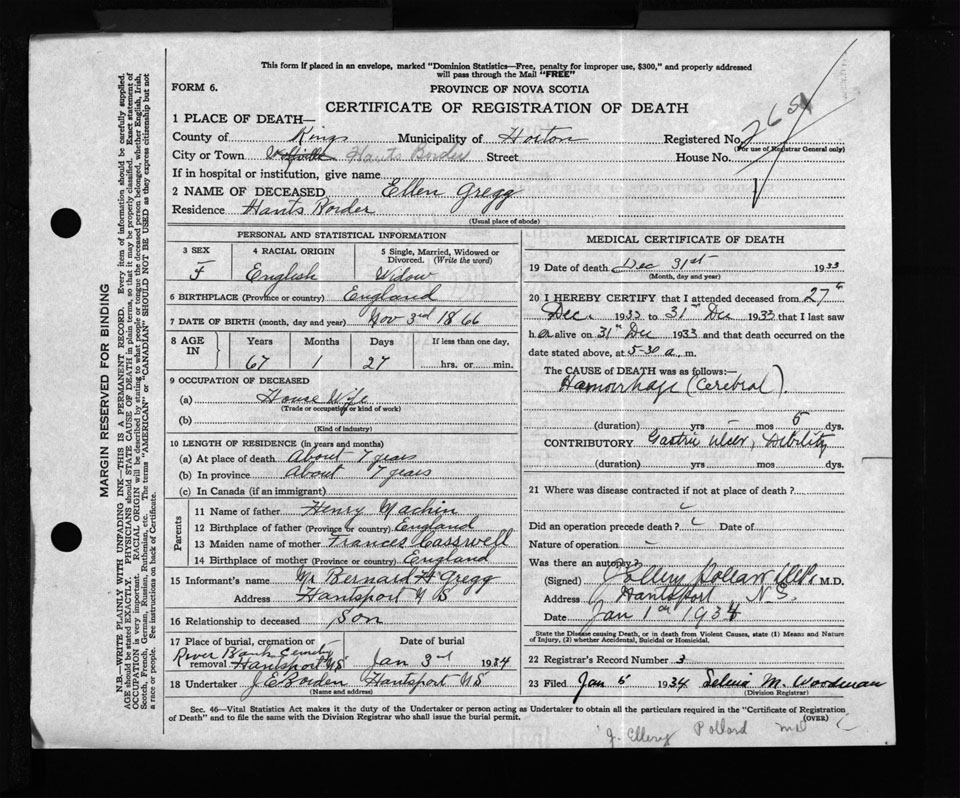 This form if placed in an envelope, marked "Dominion Statistics—Free, penalty for improper use, $300," and properly addressed
will pass through the Mail "FREE"
FORM 6.
PROVINCE OF NOVA SCOTIA
CERTIFICATE OF REGISTRATION OF DEATH
1 PLACE OF DEATH—
County of Kings Municipality of Horton Registered No. 265
(For use of Registrar General only)
City or Town Wolfville Hants Border Street House No.
If in hospital or institution, give name
2 NAME OF DECEASED Ellen Gregg
Residence Hants Border
(Usual place of abode)
PERSONAL AND STATISTICAL INFORMATION
3 SEX 4 RACIAL ORIGIN 5 Single, Married, Widowed or
Divorced. (Write the word)
F English Widow
6 BIRTHPLACE (Province or country) England
7 DATE OF BIRTH (month, day and year) Nov 3rd 1866
8 AGE IN Years Months Days If less than one day,
67 1 27 hrs. or min.
9 OCCUPATION OF DECEASED
(a) House Wife
(Trade or occupation or kind of work)
(b)
(Kind of industry)
10 LENGTH OF RESIDENCE (in years and months)
(a) At place of death About 7 years
(b) In province About 7 years
(c) In Canada (if an immigrant)
Parents
11 Name of father Henry Machin
12 Birthplace of father (Province or country) England
13 Maiden name of mother Frances Casswell
14 Birthplace of mother (Province or country) England
15 Informant's name Mr Bernard H Gregg
Address Hantsport N S
16 Relationship to deceased Son
17 Place of burial, cremation or Date of burial
River Bank Cemetry
removal Hantsport NS Jan 3rd 1934
18 Undertaker J E Borden Hantsport NS
(Name and address)
MEDICAL CERTIFICATE OF DEATH
19 Date of death Dec 31st 1933
(Month, day and year)
20 I HEREBY CERTIFY that I attended deceased from 27th
Dec. 1933 to 31st Dec 1933 that I last saw
her alive on 31st Dec 1933 and that death occurred on the
date stated above, at 5-30 a. m.
The CAUSE of DEATH was as follows:—
Hamorrhage (Cerebral).
(duration) yrs — mos 5 dys.
CONTRIBUTORY Gastric ulcer, Debility
(duration) yrs mos dys.
21 Where was disease contracted if not at place of death?
Did an operation precede death? Date of
Nature of operation —
Was there an autopsy?
(Signed) J Ellery Pollard M.D.
Address Hantsport N.S.
Date Jan 1st 1934
State the Disease causing Death, or in death from Violent Causes, state (1) Means and Nature
of Injury, (2) whether Accidental, Suicidal or Homicidal.
22 Registrar's Record Number 3
23 Filed Jan 5 1934 M. Woodman
(Division Registrar)
Sec. 46—Vital Statistics Act makes it the duty of the Undertaker or person acting as Undertaker to obtain all the particulars required in the "Certificate of Registration
of Death" and to file the same with the Division Registrar who shall issue the burial permit. (OVER)
J. Ellery Pollard MD
MARGIN RESERVED FOR BINDING
N.B.—WRITE PLAINLY WITH UNFADING INK—THIS IS A PERMANENT RECORD. Every item of information should be carefully supplied.
AGE should be stated EXACTLY. PHYSICIANS should STATE CAUSE OF DEATH in plain terms, so that it may be properly classified. Exact statement of
OCCUPATION is very important. RACIAL ORIGIN will be described by stating to what people or tongue the deceased person belonged, whether English, Irish,
Scotch, French, German, Russian, Ruthenian, etc. The terms "AMERICAN" or "CANADIAN" SHOULD NOT BE USED as they express citizenship but not
a race or people. See instructions on back of Certificate.